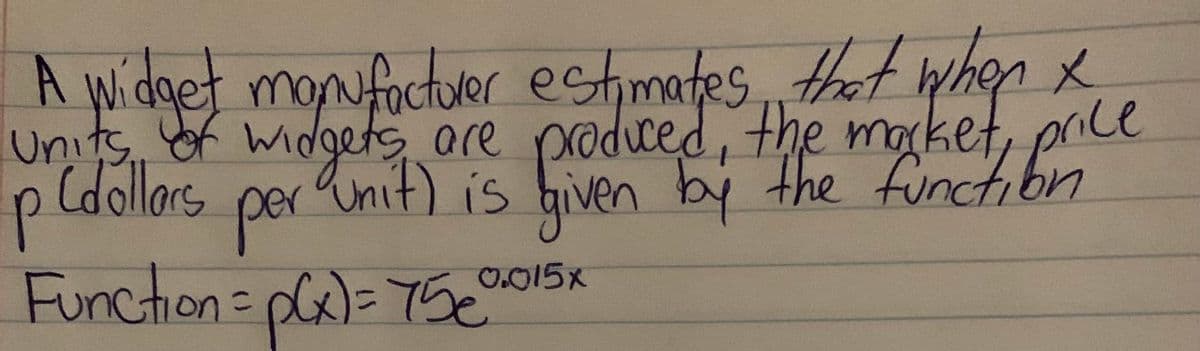 A widget manufacturer estimates that when x
units of widgets are produced, the market, price
p (dollars per unit) is given by the function
Function = p(x) = 75e^0.015x